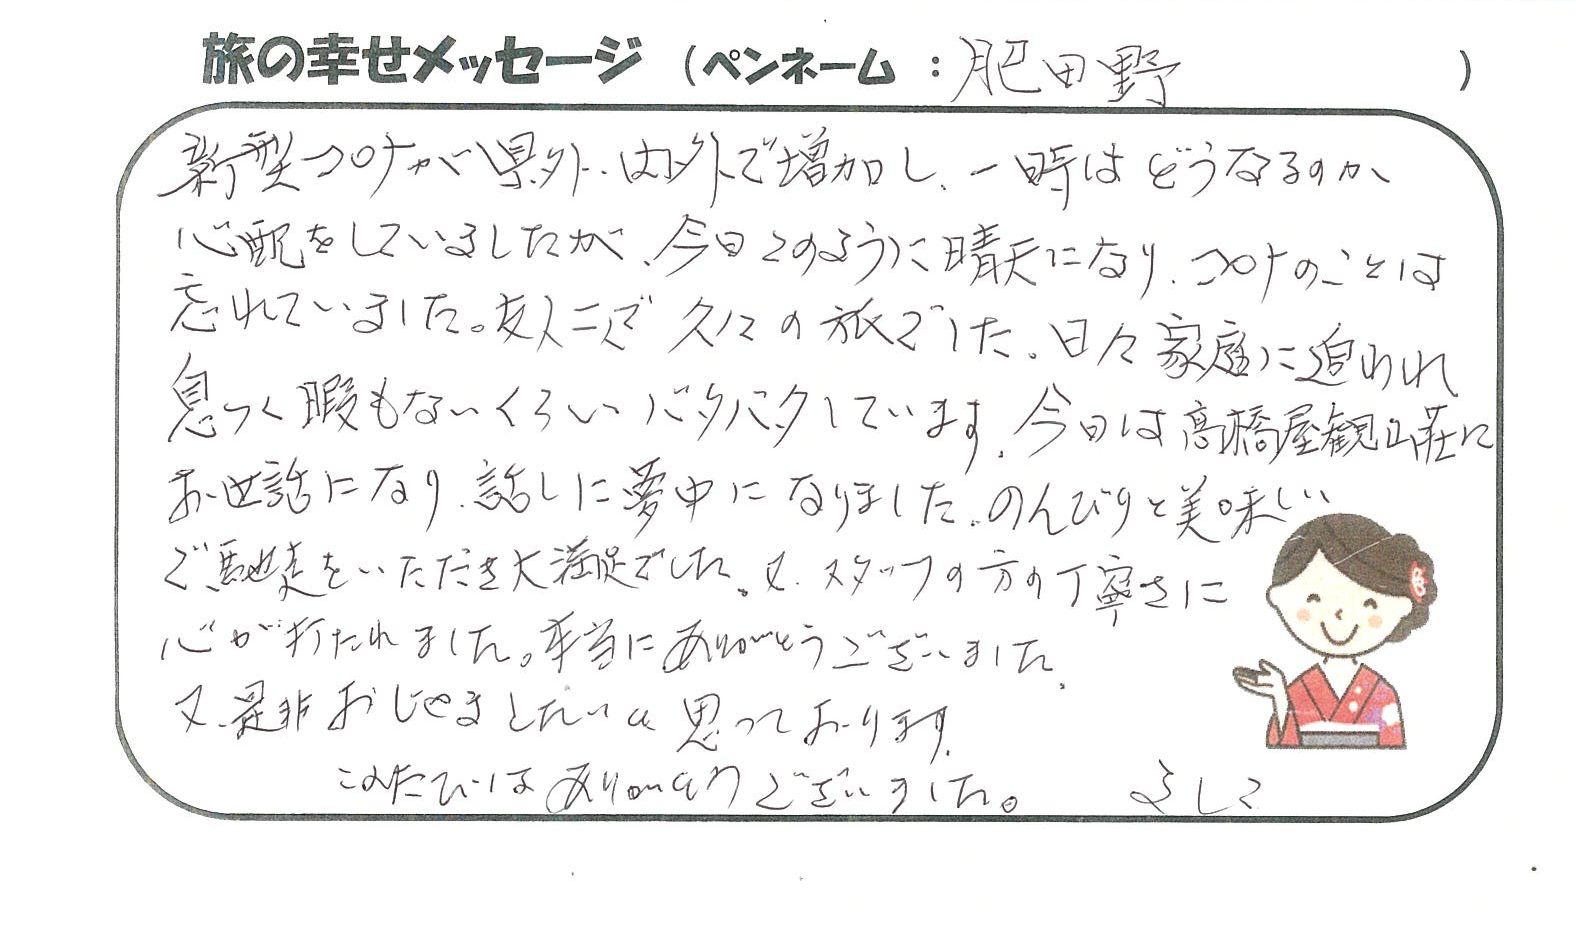 旅の幸せメッセージ (ペンネーム : 肥田野 )
新型コロナが県外、内外で増加し、一時はどうなるのか
心配をしていましたが、今日このように晴天になり、コロナのことは
忘れていました。友人二人で久々の旅でした。日々家庭に追われ
息つく暇もないくらいバタバタしています。今日は高橋屋観山荘に
お世話になり、話しに夢中になりました。のんびりと美味しい
ご馳走をいただき大満足でした。又、スタッフの方の丁寧さに
心が打たれました。本当にありがとうございました。
又、是非おじゃましたいと思っております。
このたびはありがとうございました。 よしこ